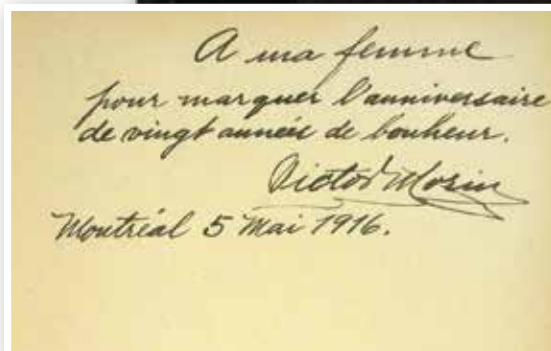 A ma femme
pour marquer l'anniversaire
de vingt années de bonheur.
Victor Morin
Montréal 5 Mai 1916.